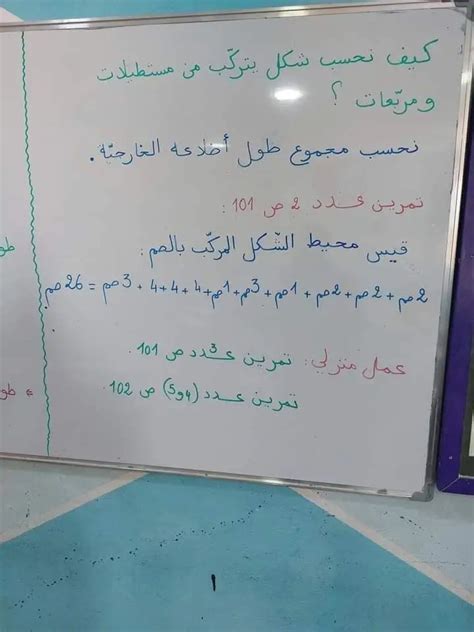 كيف نحسب شكل يتركّب من مستطيلات
و مربّعات ؟
نحسب مجموع طول أضلاعه الخارجيّة .
تمرين عدد 2 ص 101 :
قيس محيط الشكل المركّب بالصم :
2صم + 2صم + 2صم + 1صم + 3صم + 1صم + 4 + 4 + 4 + 3صم = 26صم
عمل منزلي : تمرين عدد 3 ص 101 .
تمرين عدد (4 و 5) ص 102 .
* طو